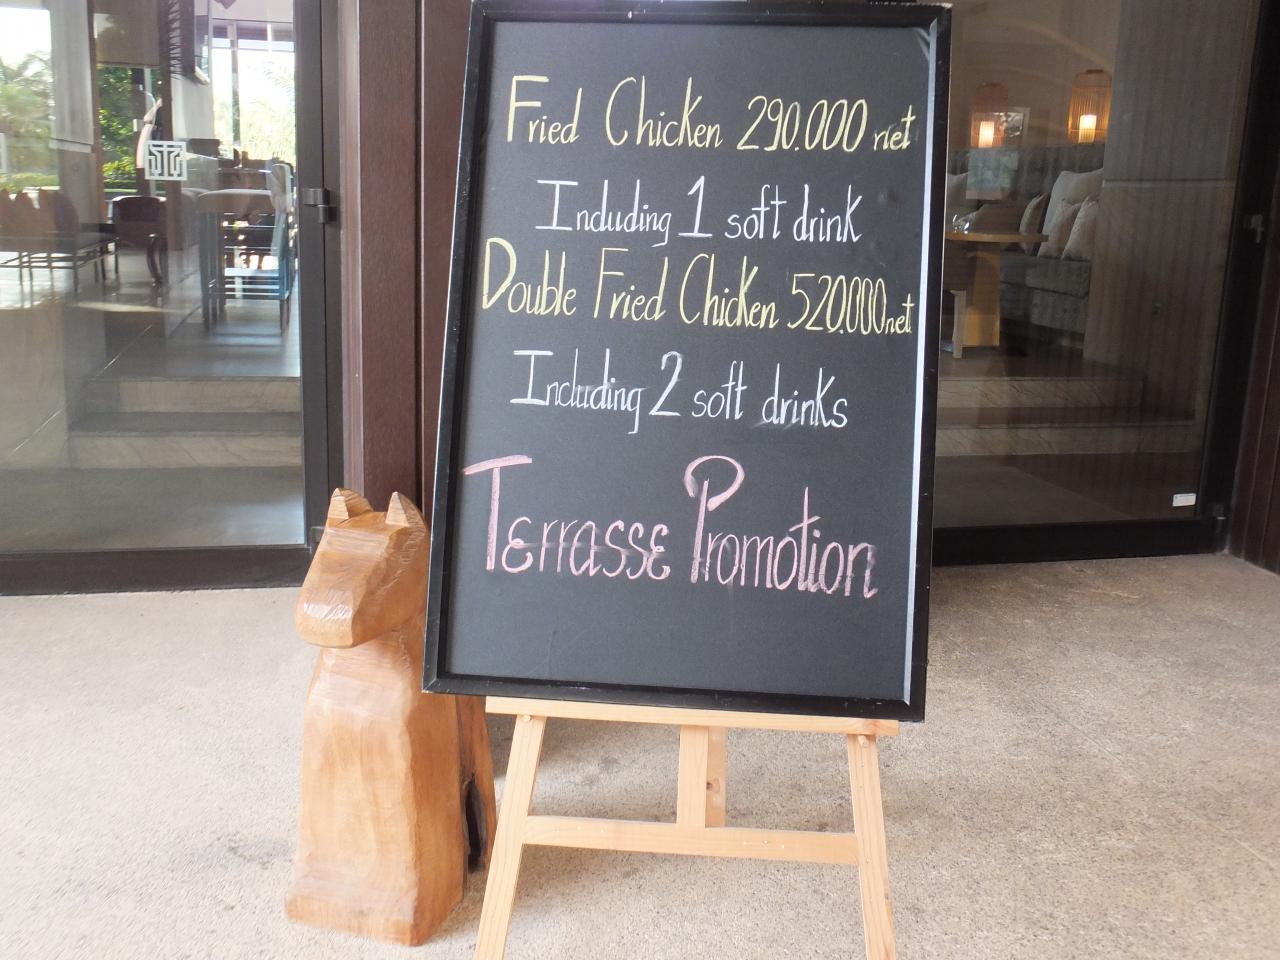 Fried Chicken 290.000 net
Including 1 soft drink
Double Fried Chicken 520.000 net
Including 2 soft drinks
Terrasse Promotion